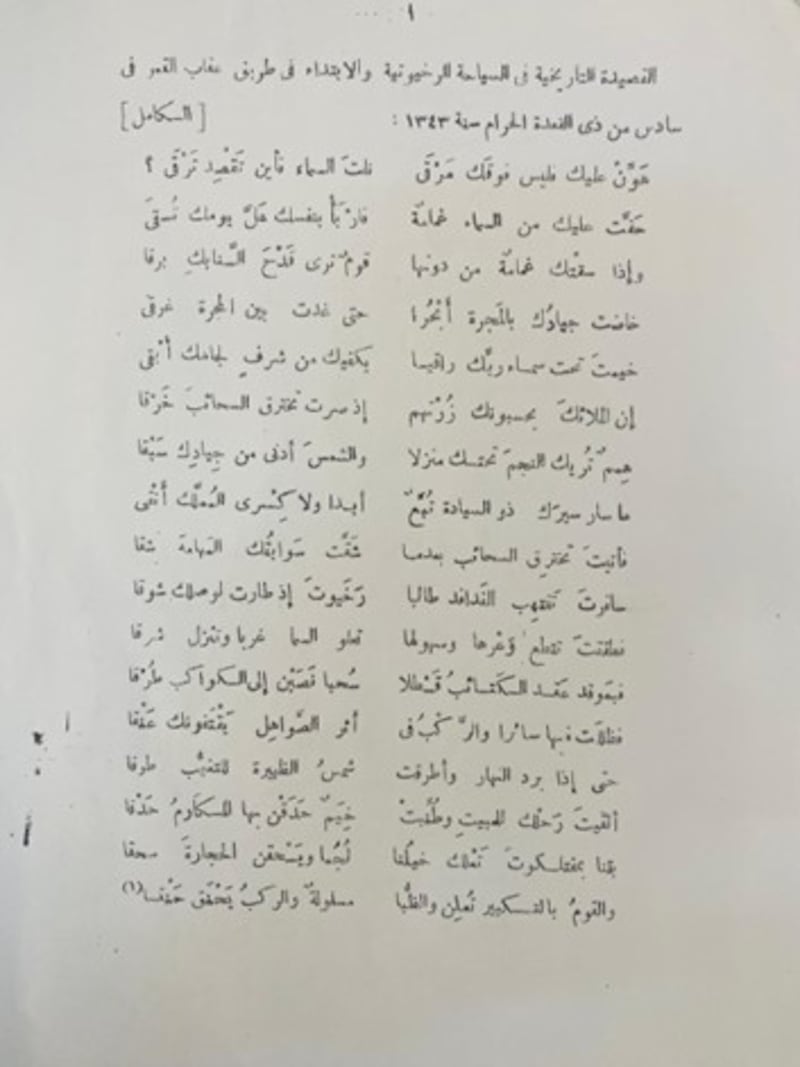 ١
القصيدة التاريخية فى السياحة الرخيوتية والابتداء فى طريق عقاب القمر فى
سادس من ذى القعدة الحرام سنة ١٣٤٣ : [ الكامل ]
هَوِّنْ عليك فليس فوقَك مَرْقَى نلتَ السماء فأين تَقْصِد تَرْقَى ؟
حَفَّت عليك من السماء غمامة فارْبَأْ بنفسك هَلَّ يومك تُسقَى
وإذا سقتْك غمامةٌ من دونها قومٌ ترى قَدْحَ السَّنابكِ برقا
خاضت جيادُك بالمَجرة أَبْحُرا حتى غدت بين المجرة غرقى
خيمتَ تحت سماء ربِّك راقيا يكفيك من شرفٍ لجامك أبْقَى
إن الملائكَ يحسبونك زُرْتهم إذ صرت تخترق السحائبَ خَرْقا
هممٌ تُريك النجمَ تحتك منزلا والشمسَ أدنى من جِيادِك سَبْقا
ما سار سيرَك ذو السيادة تُبَّعٌ أبدا ولا كِسْرى المُمَلَّك أَنْقَى
فأتيتَ تخترق السحائب بعدما شَقَّت سَوابقُك المهامهَ شقا
سافرتَ تنتهب الفَدافد طالبا رَخْيوتَ إذ طارت لوصلك شوقا
فطفقتَ تقطع وَعْرها وسهولها تعلو السما غربا وتنزل شرقا
عقد الكتائبُ قَسْطلا سُحبا قَصَبْن إلى الكواكب طُرْقا
فظللت فيها سائرا والرَّكبُ فى أثر الصَّواهِل يَقْتفونك عَنْقا
حتى إذا برد النهار وأطرقت شمسُ الظهيرة للتغيُّب طرقا
ألقيتَ رَحْلك للمبيتِ وطُنِّبتْ خِيَمٌ حَدَقْن بها المكارمُ حَدْقا
بتنا تَعْلك خيلُنا لُجُما ويَسْحقن الحجارةَ سحقا
والقومُ بالتكبير تُعلِن والظُّبا مسلولةٌ والركبُ يَخْفق خَفْقا(١)